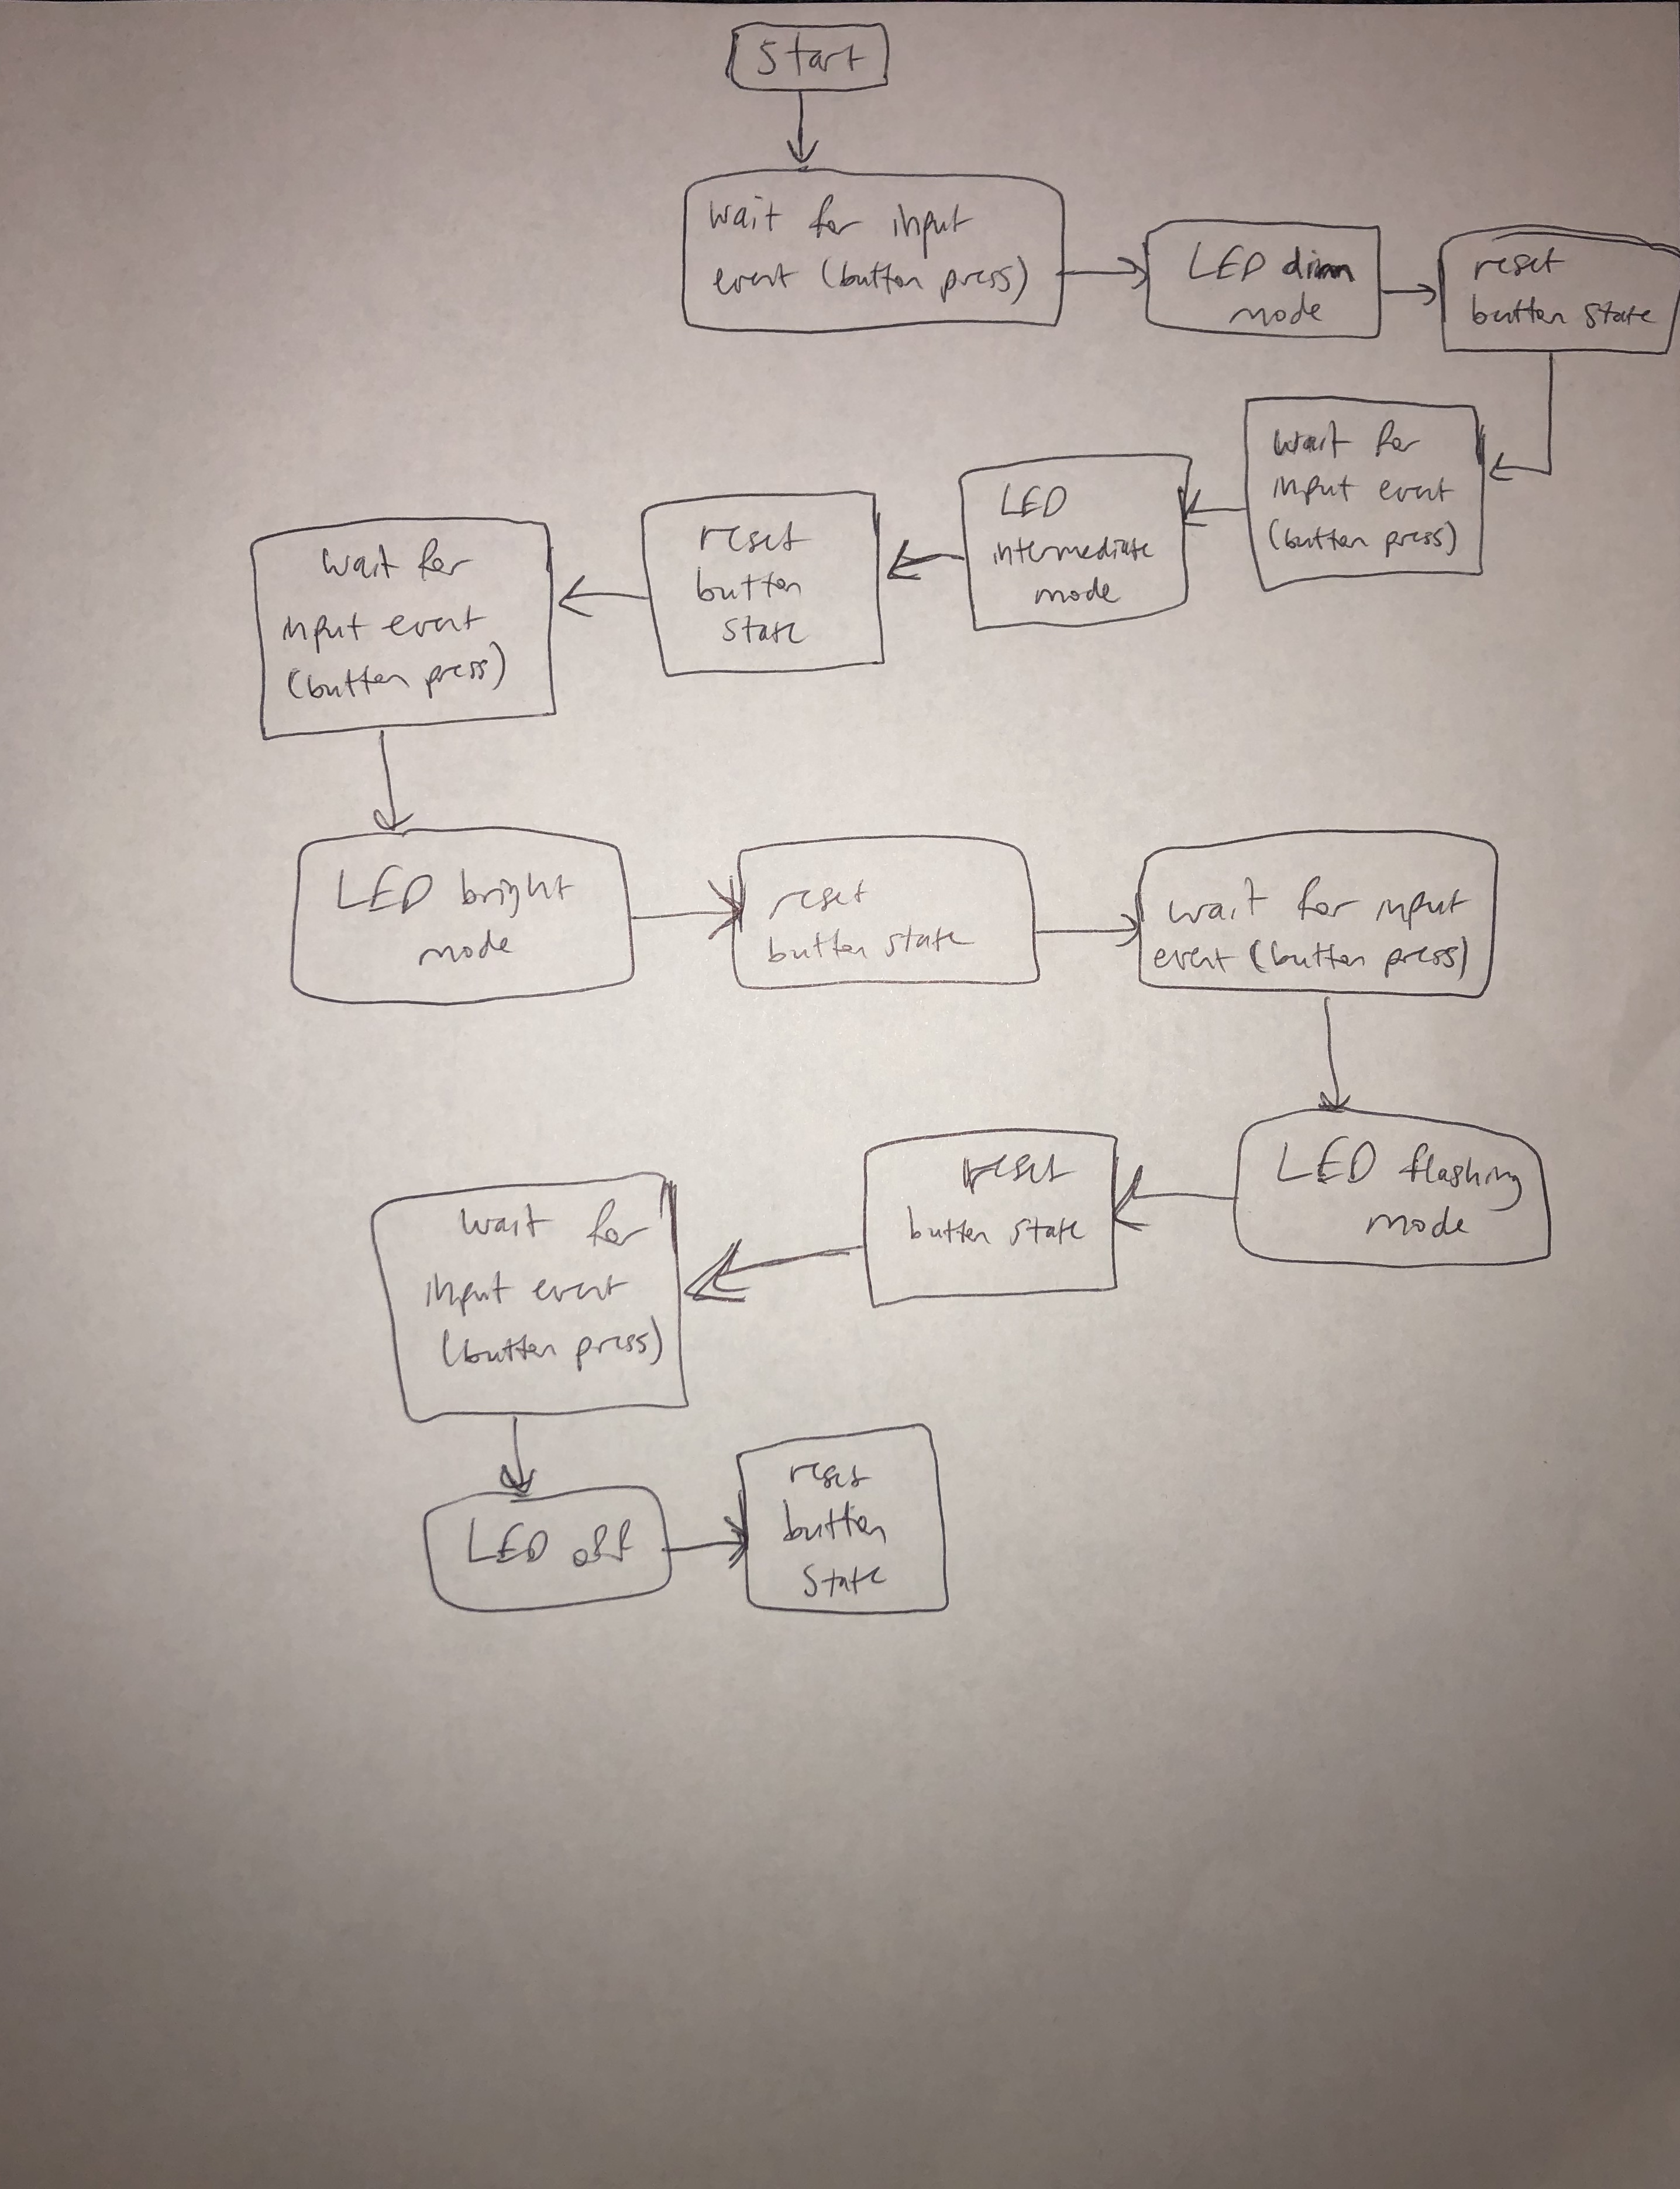 Start
wait for input
event (button press)
LED dim
mode
reset
button state
wait for
input event
(button press)
LED
intermediate
mode
reset
button
state
wait for
input event
(button press)
LED bright
mode
reset
button state
wait for input
event (button press)
LED flashing
mode
reset
button state
wait for
input event
(button press)
LED off
reset
button
state